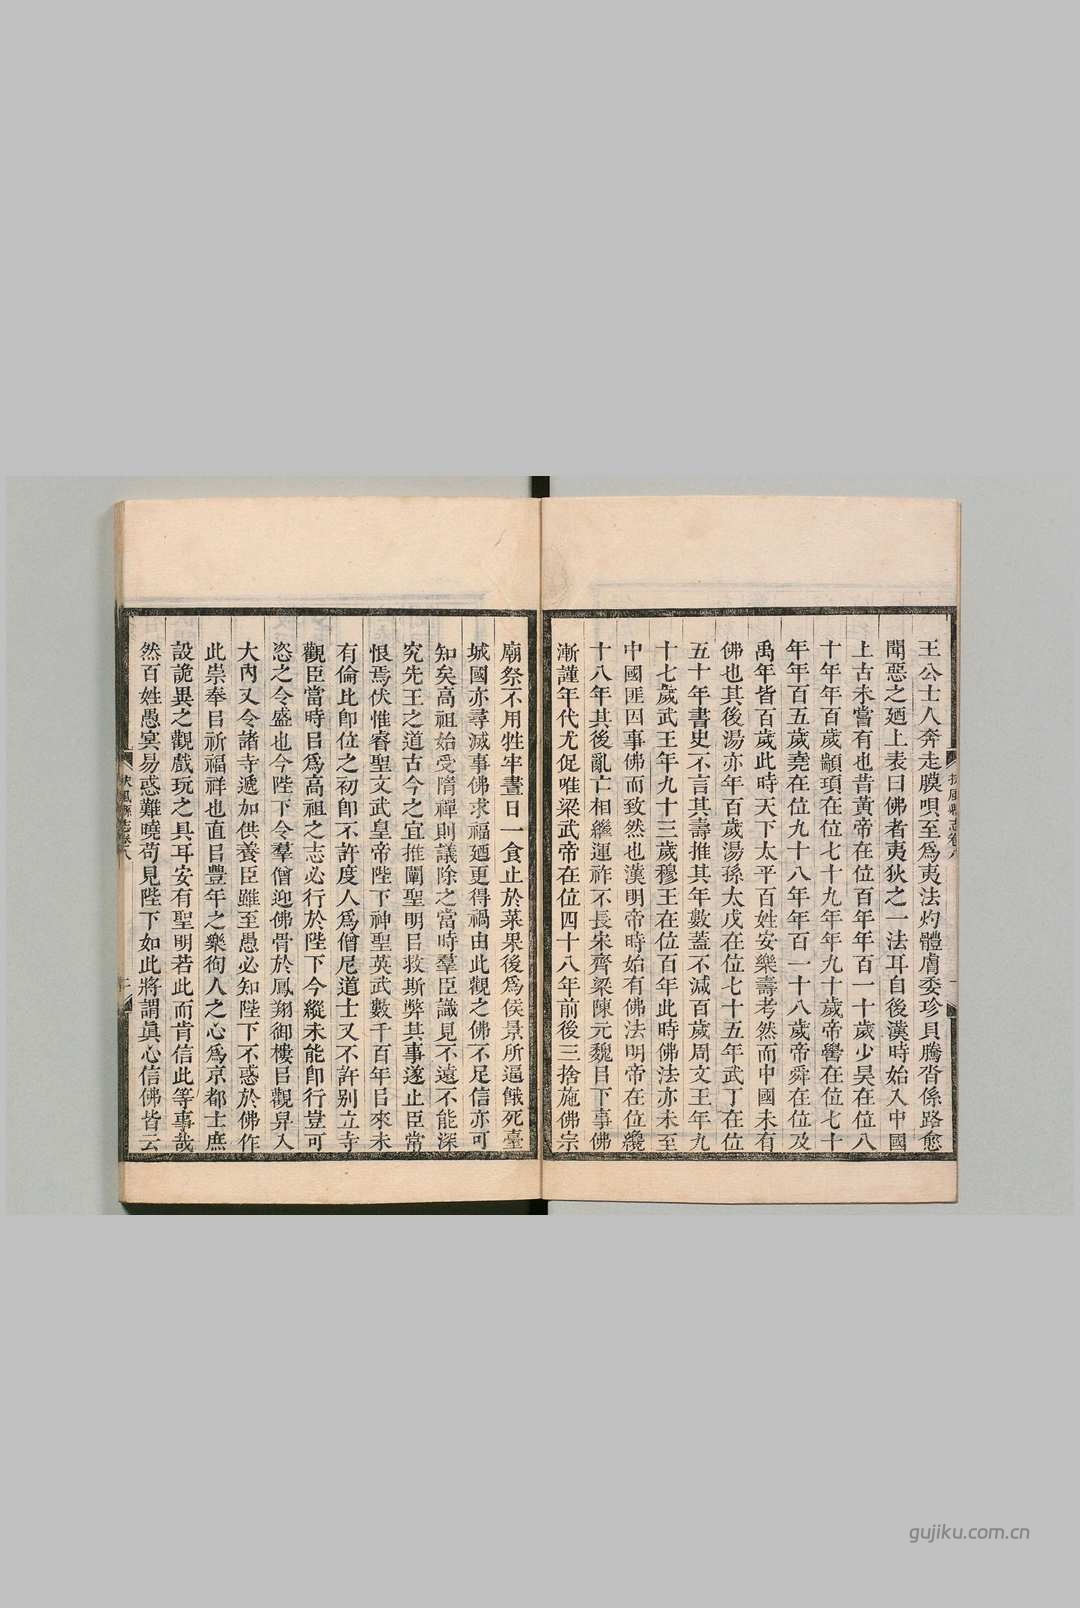 王公士人奔走膜唄至爲夷法灼體膚委珍貝騰沓係路愈
聞惡之廼上表曰佛者夷狄之一法耳自後漢時始入中國
上古未嘗有也昔黃帝在位百年年百一十歲少昊在位八
十年年百歲顓頊在位七十九年年九十歲帝嚳在位七十
年年百五歲堯在位九十八年年百一十八歲帝舜在位及
禹年皆百歲此時天下太平百姓安樂壽考然而中國未有
佛也其後湯亦年百歲湯孫太戊在位七十五年武丁在位
五十年書史不言其壽推其年數蓋不減百歲周文王年九
十七歲武王年九十三歲穆王在位百年此時佛法亦未至
中國匪因事佛而致然也漢明帝時始有佛法明帝在位纔
十八年其後亂亡相繼運祚不長宋齊梁陳元魏㠯下事佛
漸謹年代尤促唯梁武帝在位四十八年前後三捨施佛宗
廟祭不用牲牢晝日一食止於菜果後爲侯景所逼餓死臺
城國亦尋滅事佛求福廼更得禍由此觀之佛不足信亦可
知矣高祖始受隋禪則議除之當時羣臣識見不遠不能深
究先王之道古今之宜推闡聖明㠯救斯弊其事遂止臣常
恨焉伏惟睿聖文武皇帝陛下神聖英武數千百年㠯來未
有倫比卽位之初卽不許度人爲僧尼道士又不許别立寺
觀臣當時㠯爲高祖之志必行於陛下今縱未能卽行豈可
恣之令盛也今陛下令羣僧迎佛骨於鳳翔御樓㠯觀舁入
大內又令諸寺遞加供養臣雖至愚必知陛下不惑於佛作
此崇奉㠯祈福祥也直㠯豐年之樂徇人之心爲京都士庶
設詭異之觀戲玩之具耳安有聖明若此而肯信此等事哉
然百姓愚冥易惑難曉苟見陛下如此將謂眞心信佛皆云
扶風縣志卷八
二
gujiku.com.cn